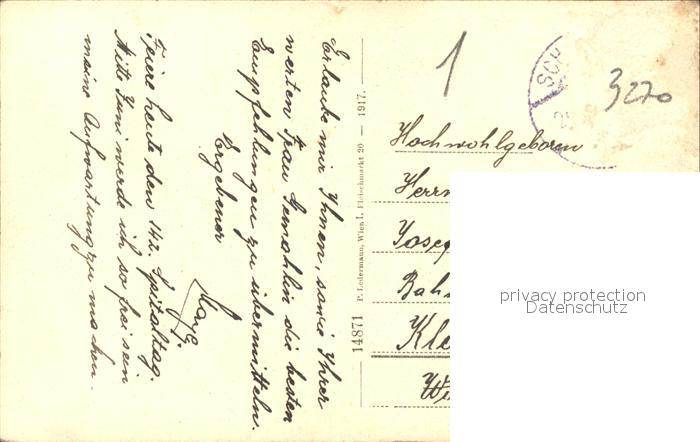 Erlaube mir Ihnen, sowie Ihrer
werten Frau Gemahlin die besten
Empfehlungen zu übermitteln.
Ergebener
Feiere heute den 142. Spitaltag.
Mitte Juni werde ich so frei sein
meine Aufwartung zu machen.
14871 P. Ledermann, Wien I. Fleischmarkt 20 — 1917.
1
SCH
3270
Hochwohlgeboren
Herrn
Josef
Bah
Kle
Wi
privacy protection
Datenschutz